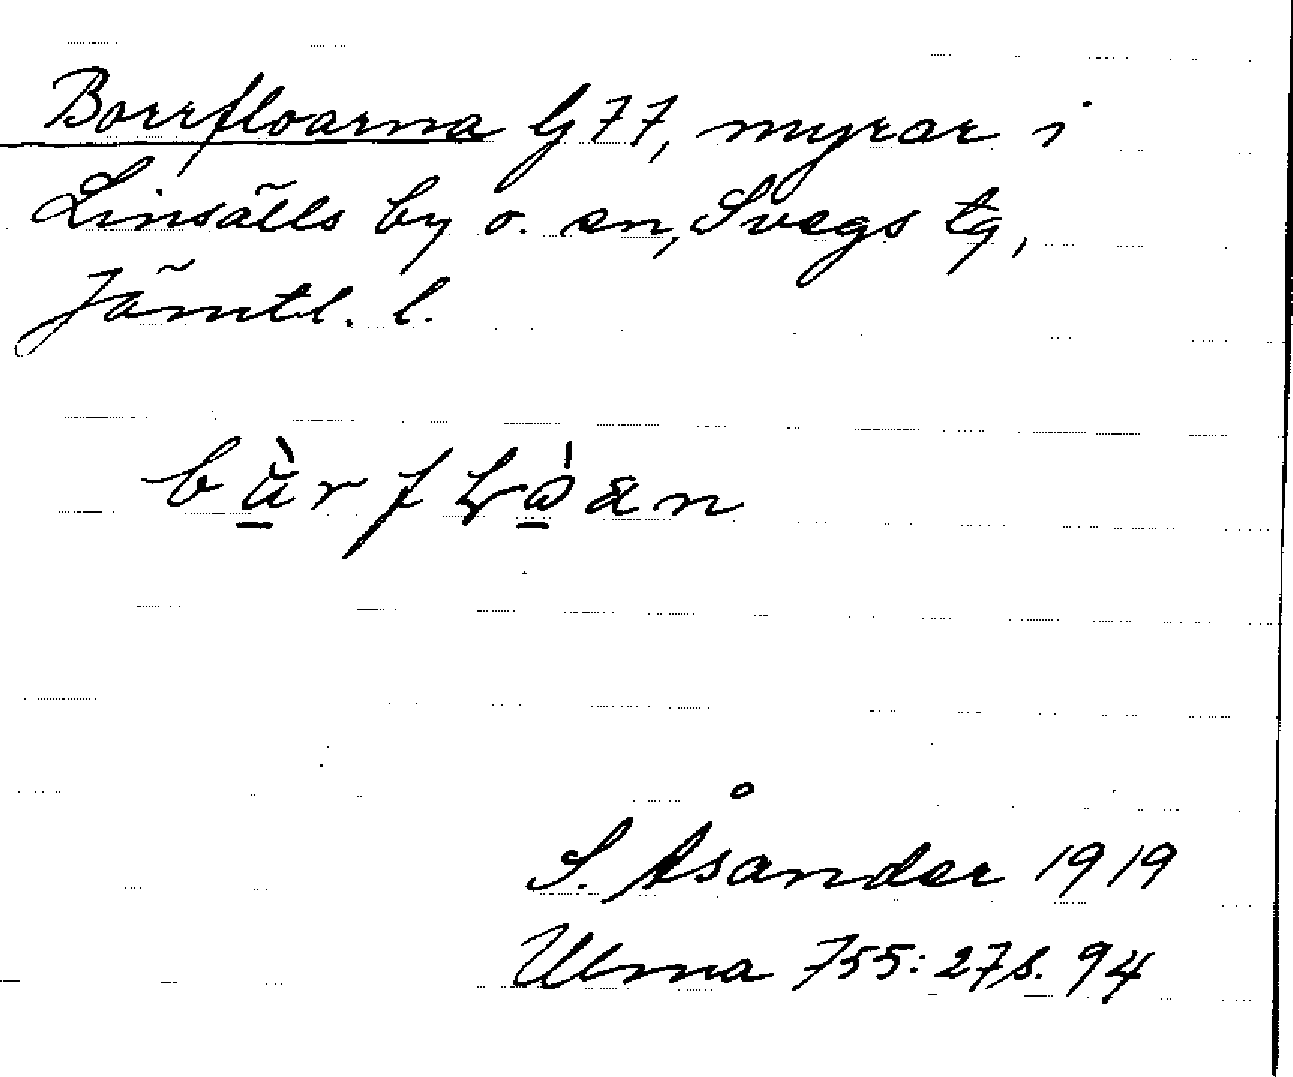 Borrfloarna G77, myrar i
Linsälls by o. sn, Svegs tg,
Jämtl. l.
S. Åsander 1919
Ulma 755:27 s. 94